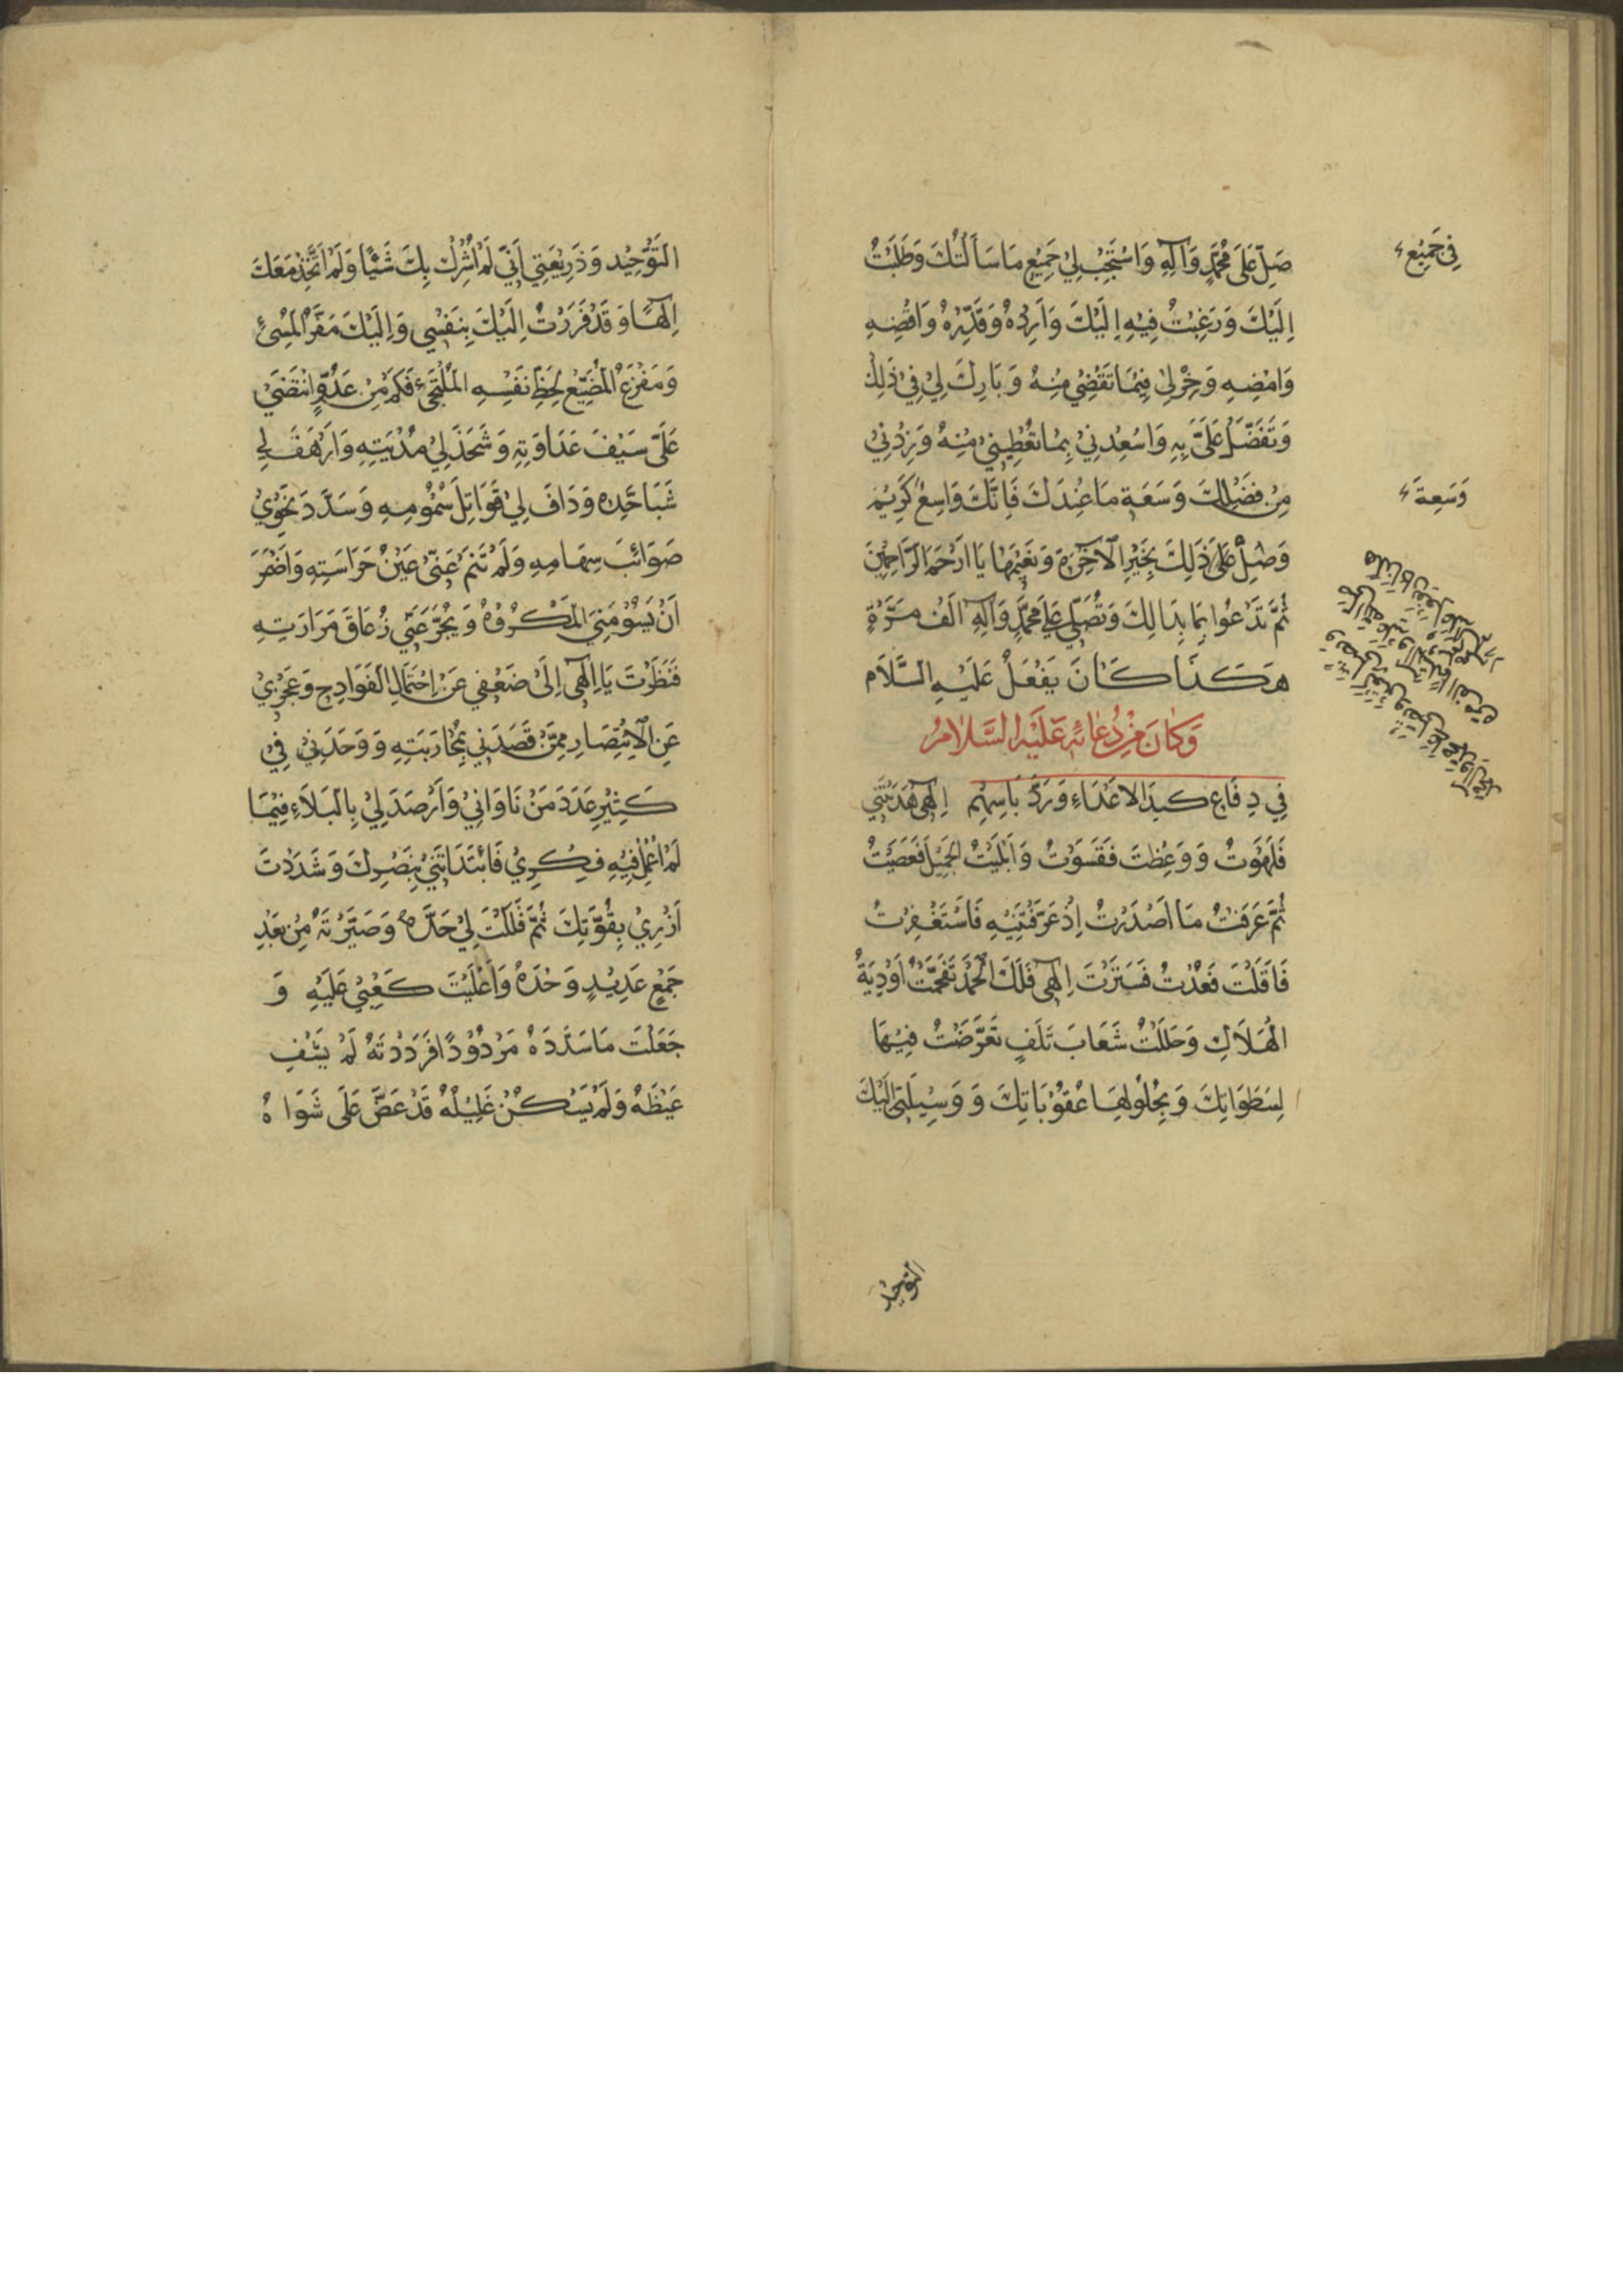 صَلِّ عَلَى مُحَمَّدٍ وَآلِهِ وَاسْتَجِبْ لِي جَمِيعَ مَا سَأَلْتُكَ وَطَلَبْتُ
اِلَيْكَ وَرَغِبْتُ فِيْهِ اِلَيْكَ وَاَرِدْهُ وَقَدِّرْهُ وَاقْضِهِ
وَامْضِهِ وَخِرْلِىْ فِيْمَا تَقْضِيْ مِنْهُ وَبَارِكْ لِيْ فِيْ ذٰلِكَ
وَتَفَضَّلْ عَلَيَّ بِهِ وَاسْعِدْنِيْ بِمَا تُعْطِيْنِيْ مِنْهُ وَزِدْنِيْ
مِنْ فَضْلِكَ وَسَعَةِ مَا عِنْدَكَ فَاِنَّكَ وَاسِعٌ كَرِيْمٌ
وَصِلْ عَلَىٰ ذٰلِكَ بِخَيْرِ الْاٰخِرَةِ وَنَعِيْمِهَا يَا اَرْحَمَ الرَّاحِمِيْنَ
ثُمَّ تَدْعُوا بِمَا بَدَا لَكَ وَتُصَلِّي عَلَى مُحَمَّدٍ وَآلِهِ اَلْفَ مَرَّةٍ
هٰكَذَا كَانَ يَفْعَلُ عَلَيْهِ السَّلَام
وَكَانَ مِنْ دُعَائِهِ عَلَيْهِ السَّلَامُ
فِي دِفَاعِ كَيدِ الاَعْدَاءِ وَرَدِّ بَاسِهِم اِلٰهِي هَدَيْتَنِي
فَلَهَوْتُ وَوَعِظْتَ فَقَسَوْتُ وَاَبْلَيْتَ الجَمِيْلَ فَعَصَيْتُ
ثُمَّ عَرَفْتُ مَا اَصْدَرْتَ اِذْ عَرَّفْتَنِيْهِ فَاسْتَغْفَرْتُ
فَاَقَلْتَ فَعُدْتُ فَسَتَرْتَ اِلٰهِي فَلَكَ الْحَمْدُ تَقَحَّمْتُ اَوْدِيَةَ
الْهَلَاكِ وَحَلَلْتُ شِعَابَ تَلَفٍ تَعَرَّضْتُ فِيْهَا
لِسَطَوَاتِكَ وَبِحُلُوْلِهَا عُقُوْبَاتِكَ وَوَسِيْلَتِي اِلَيْكَ
فِي جَمِيْعِ
وَسَعَةِ
التوحيد
التَّوْحِيْد وَذَرِيْعَتِي اَنِّي لَمْ اُشْرِكْ بِكَ شَيْئًا وَلَمْ اَتَّخِذْ مَعَكَ
اِلٰهًا وَقَدْ فَرَرْتُ اِلَيْكَ بِنَفْسِي وَاِلَيْكَ مَفَرُّ الْمُسِيْءِ
وَمَفْزَعُ الْمُضَيِّعِ لِحَظِّ نَفْسِهِ الْمُلْتَجِئِ فَكَمْ مِنْ عَدُوٍّ انْتَضَىٰ
عَلَيَّ سَيْفَ عَدَاوَتِهِ وَشَحَذَ لِيْ مُدْيَتِهِ وَاَرْهَفَ لِي
شَبَا حَدِّهِ وَدَافَ لِيْ قَوَاتِلَ سُمُوْمِهِ وَسَدَّدَ نَحْوِيْ
صَوَائِبَ سِهَامِهِ وَلَمْ تَنَمْ عَنِّيْ عَيْنُ حَرَاسَتِهِ وَاَضْمَرَ
اَنْ يَسُوْمَنِيَ الْمَكْرُوْهَ وَيُجَرِّعَنِي زُعَاقَ مَرَارَتِهِ
فَنَظَرْتَ يَا اِلٰهِي اِلَىٰ ضَعْفِي عَنْ اِحْتِمَالِ الْفَوَادِحِ وَعَجْزِيْ
عَنِ الْاِنْتِصَارِ مِمَّنْ قَصَدَنِي بِمُحَارَبَتِهِ وَوَحْدَتِيْ فِيْ
كَثِيْرِ عَدَدِ مَنْ نَاوَانِيْ وَاَرْصَدَ لِيْ بِالْبَلَاءِ فِيْمَا
لَمْ اُعْمِلْ فِيْهِ فِكْرِيْ فَابْتَدَاتَنِيْ بِنَصْرِكَ وَشَدَدْتَ
اَزْرِيْ بِقُوَّتِكَ ثُمَّ فَلَلْتَ لِيْ حَدَّهُ وَصَيَّرْتَهُ مِنْ بَعْدِ
جَمْعٍ عَدِيْدٍ وَحْدَهُ وَاَعْلَيْتَ كَعْبِيْ عَلَيْهِ وَ
جَعَلْتَ مَا سَدَّدَهُ مَرْدُوْدًا فَرَدَدْتَهُ لَمْ يَشْفِ
غَيْظَهُ وَلَمْ يَسْكُنْ غَلِيْلُهُ قَدْ عَضَّ عَلَى شَوَاهُ